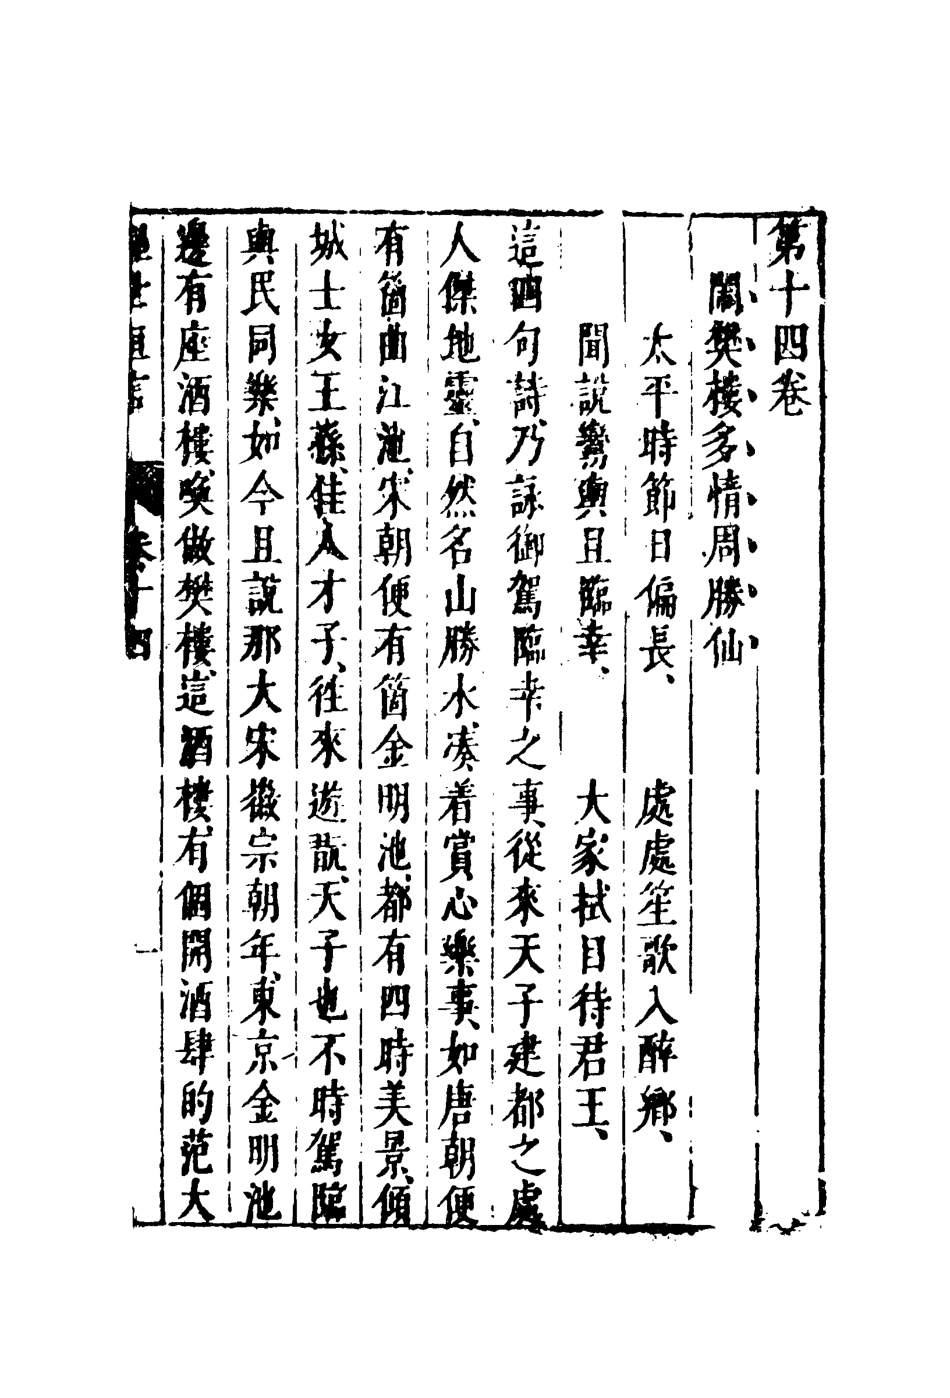 第十四卷
鬧樊樓多情周勝仙
太平時節日偏長、處處笙歌入醉鄉、
聞說鸞輿且臨幸、大家拭目待君王、
這四句詩、乃詠御駕臨幸之事、從來天子建都之處
人傑地靈、自然名山勝水、湊着賞心樂事、如唐朝便
有箇曲江池、宋朝便有箇金明池、都有四時美景、傾
城士女王孫、佳人才子、往來遊翫、天子也不時駕臨
與民同樂、如今且說那大宋徽宗朝年、東京金明池
邊有座酒樓、喚做樊樓、這酒樓有個開酒肆的范大
醒世恒言 卷十四 一